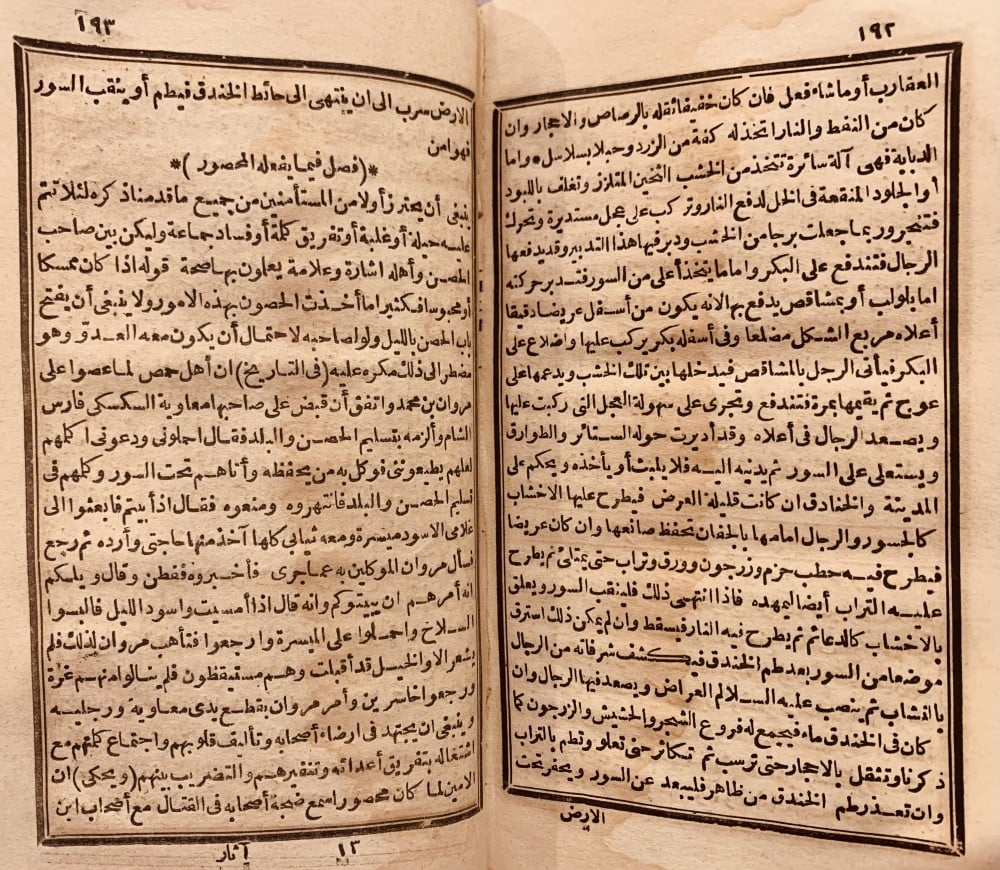 ١٩٢
العقارب أو ما شاء فعل فان كان خفيفا ثقله بالرصاص والاحجار وان
كان من النفط والنار اتخذ له كفة من الزرد وحبلا بسلاسل * واما
الدبابة فهى آلة سائرة تتخذ من الخشب الثخين المتلزز وتغلف باللبود
أو الجلود المنقعة فى الخل لدفع النار وتركب على عجل مستديرة وتحرك
فتنجر وربما جعلت برجا من الخشب ودبر فيها هذا التدبير وقد يدفعها
الرجال فتندفع على البكر واما ما يتخذ أعلى من السور فتدبر حركته
اما بلولب أو بمشاقص يدفع بها لانه يكون من أسفل عريضا دقيقا
أعلاه مربع الشكل مضلعا وفى أسفله بكر يركب عليها واضلاع على
البكر فيأتى الرجل بالمشاقص فيدخلها بين تلك الخشب ويدعمها على
عوج ثم يقيمها بمرة فتندفع وتجرى على سهولة العجل التى ركبت عليها
ويصعد الرجال فى أعلاه وقد أديرت حوله الستائر والطوارق
ويستعلى على السور ثم يدنيه اليه فلا يلبث أو يأخذه ويحكم على
المدينة والخنادق ان كانت قليلة العرض فيطرح عليها الاخشاب
كالجسور والرجال امامها بالجفان تحفظ صانعها وان كان عريضا
فيطرح فيه حطب حزم وزرجون وورق وتراب حتى يمتلئ ثم يطرح
عليه التراب أيضا ليمهده فاذا انتهى ذلك فلينقب السور ويعلق
بالاخشاب كالدعائم ثم يطرح فيه النار فيسقط وان لم يمكن ذلك استرق
موضعا من السور بعد طم الخندق فيكشف شرفاته من الرجال
بالنشاب ثم ينصب عليه السلالم العراض ويصعد فيها الرجال وان
كان فى الخندق ماء فيجمع له فروع الشجر والحشيش والزرجون كما
ذكرنا وتثقل بالاحجار حتى ترسب ثم تتكاثر حتى تعلو وتطم بالتراب
وان تعذر طم الخندق من ظاهر فليبعد عن السور ويحفر تحت
الارض
١٩٣
الارض سرب الى ان ينتهى الى حائط الخندق فيطم أو ينقب السور
فهو امن
*(فصل فيما يفعله المحصور)*
ينبغى أن يحترز أولا من المستأمنين من جميع ما قدمنا ذكره لئلا تتم
عليه حيلة أو غلبة أو تفريق كلمة أو فساد جماعة وليكن بين صاحب
الحصن وأهله اشارة وعلامة يعلون بها صحة قوله اذا كان ممسكا
أو محبوسا فكثير اما أخذت الحصون بهذه الامور ولا ينبغى أن يفتح
باب الحصن بالليل ولو لصاحبه لاحتمال أن يكون معه العدو وهو
مضطر الى ذلك مكره عليه (فى التاريخ) ان أهل حمص لما عصوا على
مروان بن محمد واتفق أن قبض على صاحبها معاوية السكسكى فارس
الشام وألزمه بتسليم الحصن والبلد فقال احملونى ودعونى اكلمهم
لعلهم يطيعونى فوكل به من يحفظه وأتاهم تحت السور وكلمهم فى
تسليم الحصن والبلد فانتهروه ومنعوه فقال اذ أبيتم فابعثوا الى
غلامى الاسود ميسرة ومعه ثيابى كلها آخذ منها حاجتى وأرده ثم رجع
فسأل مروان الموكلين به عما جرى فأخبروه ففطن وقال ويلكم
انه أمرهم ان يبيتوكم وانه قال اذا أمسيت واسود الليل فالبسوا
السلاح واحملوا على الميسرة وارجعوا فتأهب مروان لذلك فلم
يشعر الا والخيل قد أقبلت وهم مستيقظون فلم ينالوا منهم غرة
ورجعوا خاسرين وأمر مروان بقطع يدى معاوية ورجليه
وينبغى ان يجتهد فى ارضاء أصحابه وتأليف قلوبهم واجتماع كلمتهم مع
اشتغاله بتفريق أعدائه وتنفيرهم والتضريب بينهم (ويحكى) ان
الامين لما كان محصورا سمع ضجة أصحابه فى القتال مع أصحاب ابن
١٣ آثار